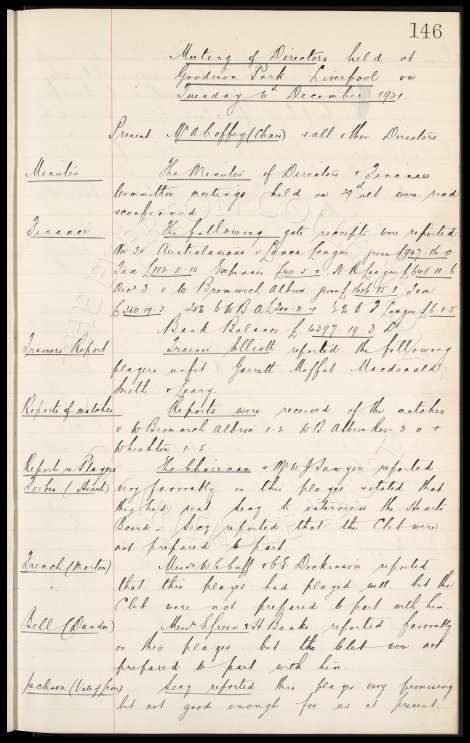 146
Meeting of Directors held at
Goodison Park Liverpool on
Tuesday 6th December 1921.
Present Mr A Coffey (Chair) & all other Directors
Minutes The Minutes of Directors & Finance
Committee meetings held on 29th ult were read
& confirmed
Finance The following gate receipts were reported
Nov 30 Australasians v Lancs League gross £947-16-0
Tax £182-8-10 Expenses £40-5-0 N. R. League £608-11-6
Decr 3 v W Bromwich Albion gross £1616-15-1 Tax
£350-19-3 20% to W B A £200-3-4 % to F League £6-1-5
Bank Balance £4397-19-3 Dr
Trainers Report Trainer Elliott reported the following
players unfit Garrett Moffat Macdonald
Smith & Leary.
Reports of matches Reports were received of the matches
v W Bromwich Albion 1-2 W B Albion Res 2-0 &
Wheshton 1-5
Reports re Players The Chairman & Mr W J Sawyer reported
Forbes (Hearts) very favorably on this player & stated that
they had sent Secy to interview the Hearts
Board. Secy reported that the Club were
not prepared to part
French (Morton) Messrs W C Cuff & E Dickinson reported
that this player had played well but the
Club were not prepared to part with him.
Bell (Dundee) Messrs E Green & H Banks reported favorably
on this player but the Club were not
prepared to part with him.
Jackson (Vale of Leven) Secy reported this player very promising
but not good enough for us at present